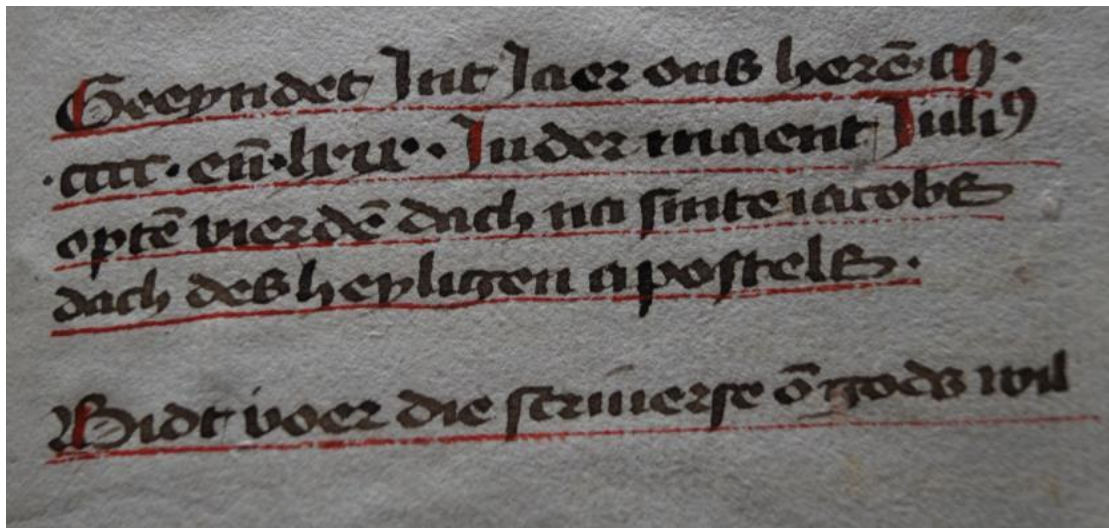 Geeyndet Int Iaer ons herē·M·
·cccc·en̄·lxxx· In der maent Iuliꝰ
optē vierdē dach na sinte iacobs
dach des heyligen apostels·
Bidt voer die scriuerse ō gods wil